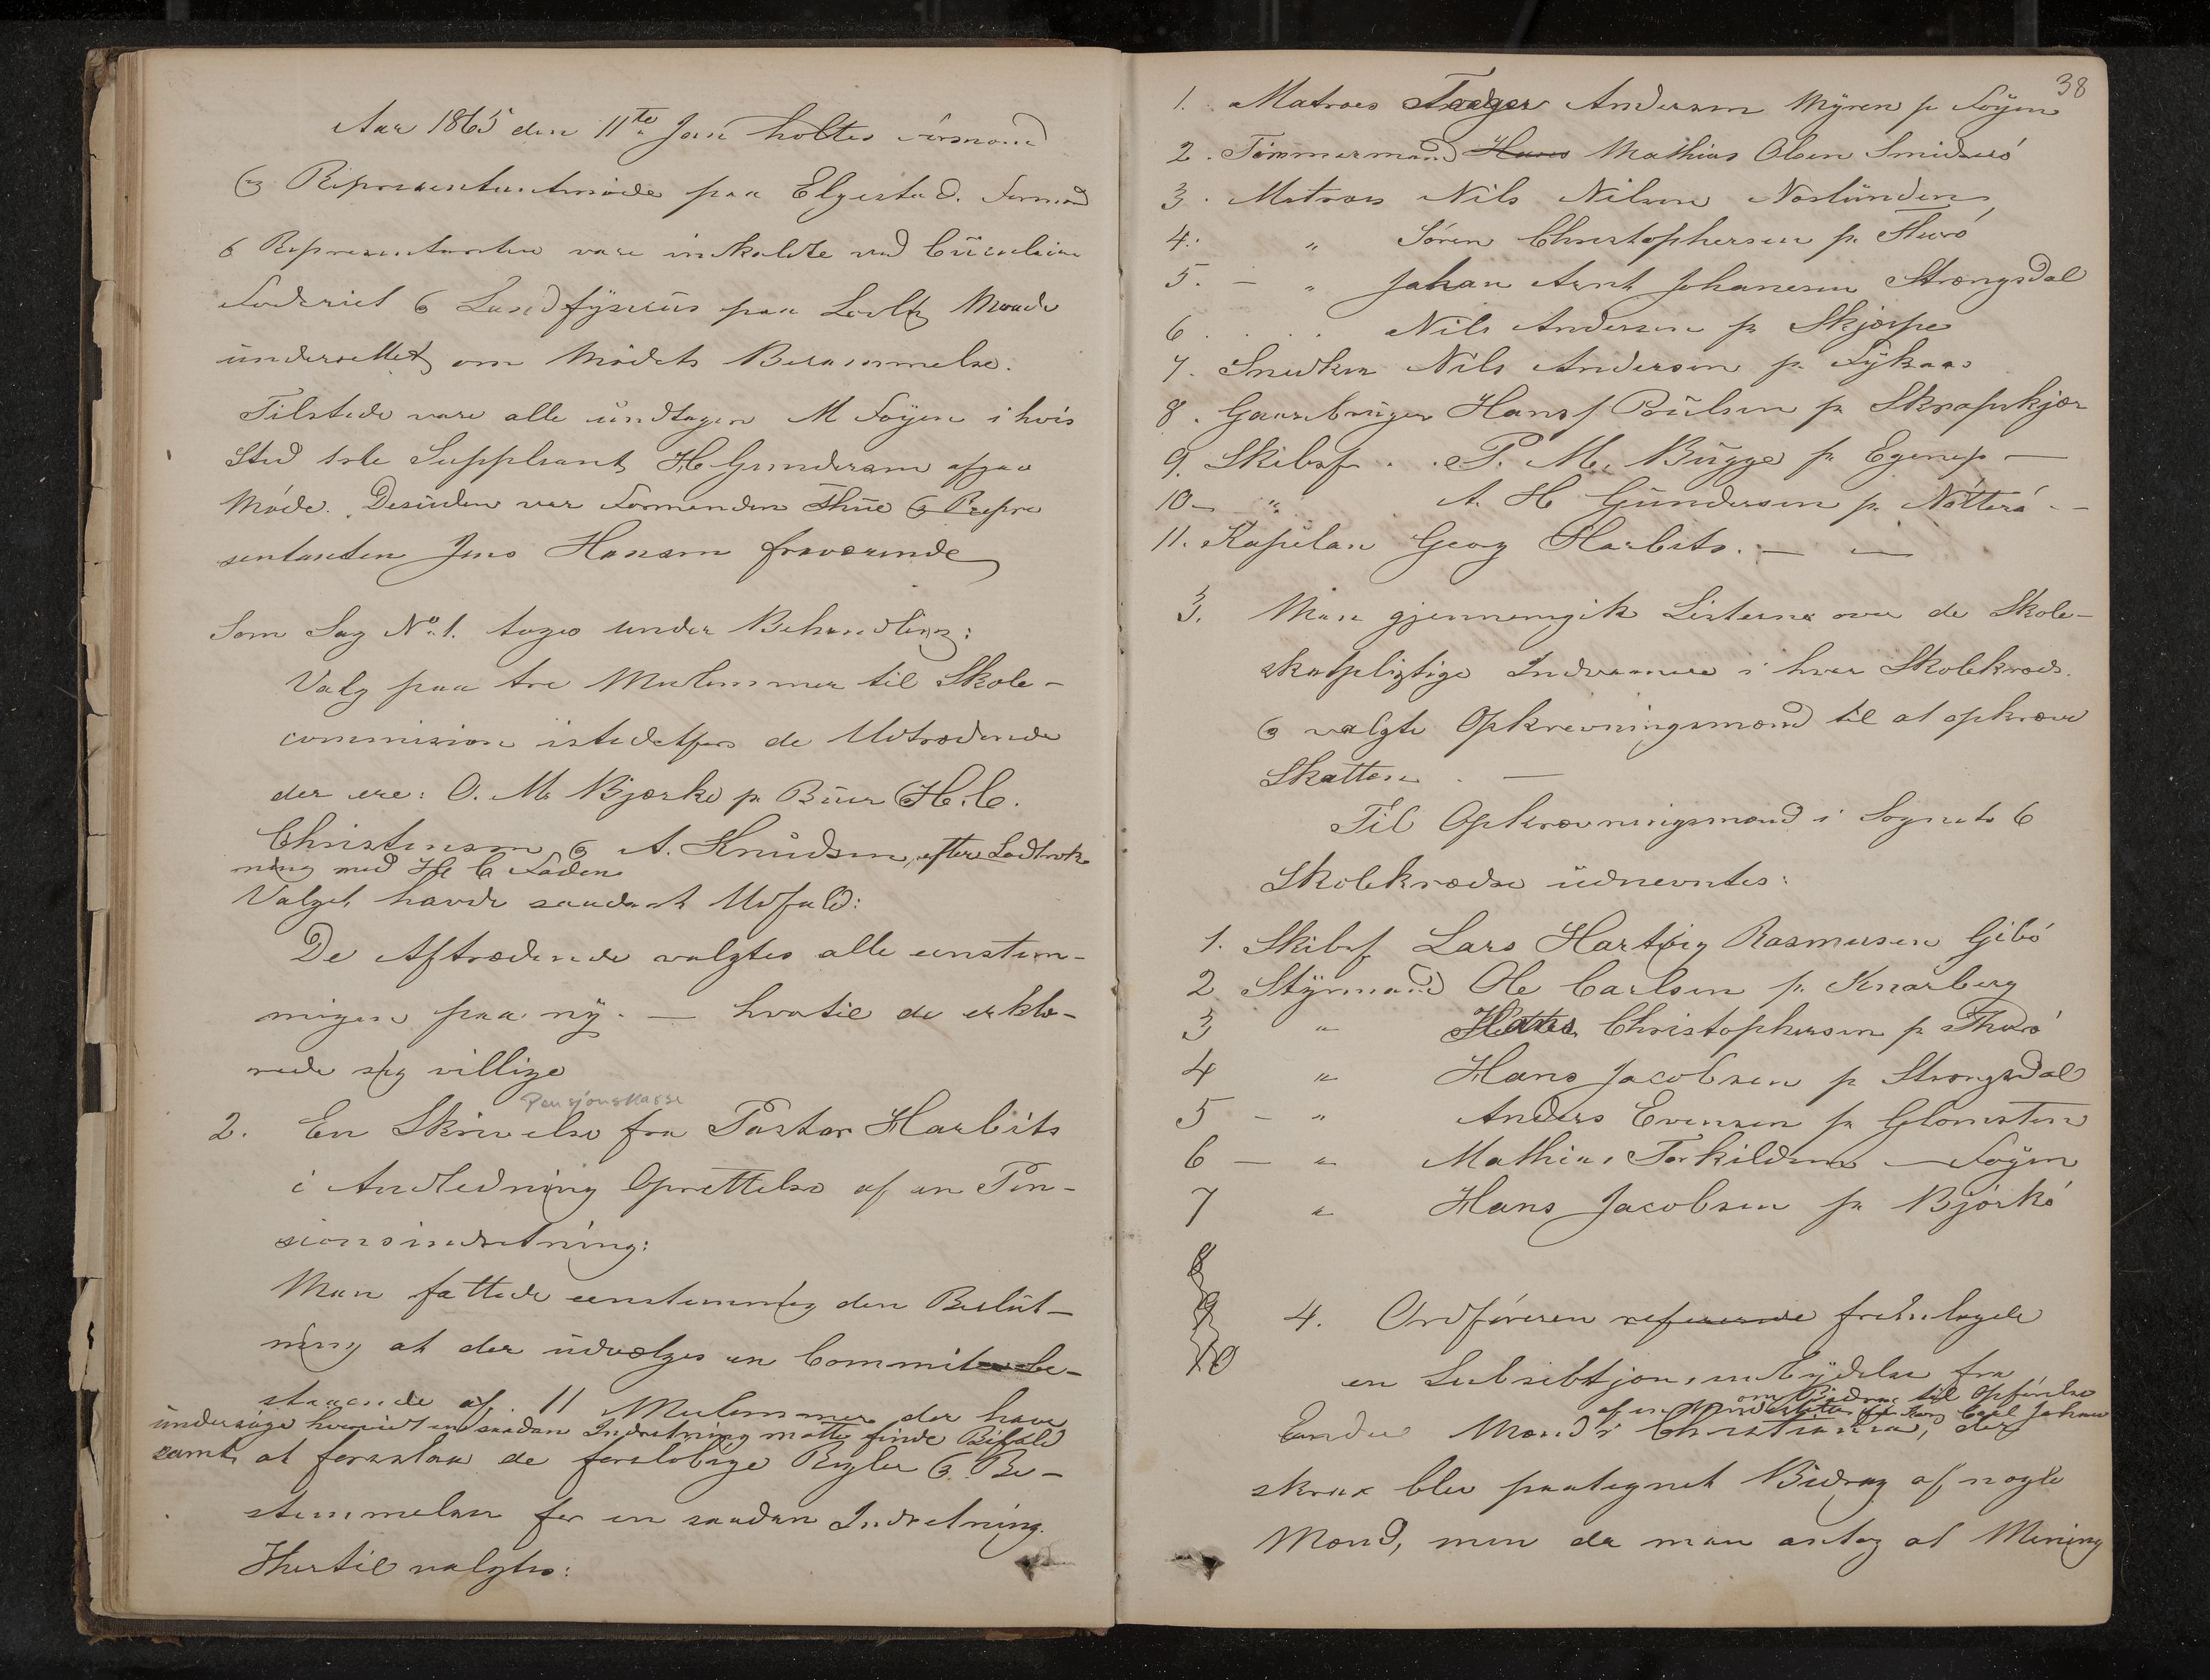 Aar 1865 den 11te Jan holtes Formand
& Repræsentantmøde paa Elgestad. Formænd
& Repræsentanten vare inkaldte ved Circulaire
Foderiet & Landfysicus paa Lovlig Maade
underrettet om Mødets Berammelse.
Tilstede vare alle undtagen M Foyen i hvis
Sted 1ste Suppleant H Gundersen afgav
Møde. Desuden var Formanden Thue & Repre
sentanten Jens Hansen fraværende
Som Sag No 1. toges under Behandling:
Valg paa tre Medlemmer til Skole-
commision istedetfor de Udtrædende
der ere: O. M. Bjerke p. Buer H. C.
Christensen & A. Knudsen, efter Lodtræk
ning med H C Foden
Valget havde saadant Udfald:
De Aftrædende valgtes alle eenstem-
migen paa ny. — hvortil de erklæ-
rede sig villige
Pensjonskasse
2. En Skrivelse fra Pastor Harbits
i Andledning Oprettelse af en Pen-
sionsindretning:
Man fattede eenstemmig den Beslut-
ning at der udvælges en Commite be-
staaende af 11 Medlemmer der have
undersøge hvorvidt en saadan Indretning matte finde Bifald
samt at foreslaa de foreløbige Regler & Be-
stemmelser for en saadan Indretning.
Hertil valgtes:
38
1. Matroes Anderson Myren p. Foyen
2. Tømmermand Hans Mathias Olsen Smidsrö
3. Matroes Nils Nilsen Noslunden
4. " Sören Christophersen p. Thurö
5. — " Johan Arnt Johanesen Strængsdal
6 . . . Nils Andersen p. Skjerpe
7. Snedker Nils Anderson p. Lykaas
8. Gaarbruger Hans J Poulsen p. Skrapeskjær
9. Skibsf. . P. M. Bugge p. Egenes —
10 — " A. H Gundersen p. Nötterö - -
11. Kapelan Georg Harbits. — —
3. Man gjennemgik Listerne over de Skole-
skatpligtige Indvaanere i hver Skolekreds.
& valgte Opkrevningsmænd til at opkræve
Skatten. —
Til Opkrævningsmænd i Sognets 6
Skolekredse udnevntes:
1. Skibsf Lars Hartvig Rasmusen Gibö
2 Styrmand Ole Carlsen p. Knarberg
3 " Christophersen p Thurö
4 " Hans Jacobsen p Strængsdal
5 — " Anders Evensen p. Glomsten
6 — " Mathias Torkildsen — Foyen
7 " Hans Jacobsen p. Bjørkö
8
9
10
4. Ordföreren refererede fremlagde
en Subskribtjons indbydelse fra
om Bidrag til Opførelse
af en for Kong Carl Johan
Mænd i Christiania, der
strax blev paategnet Bidrag af nogle
Mænd, men da man antog at Mening